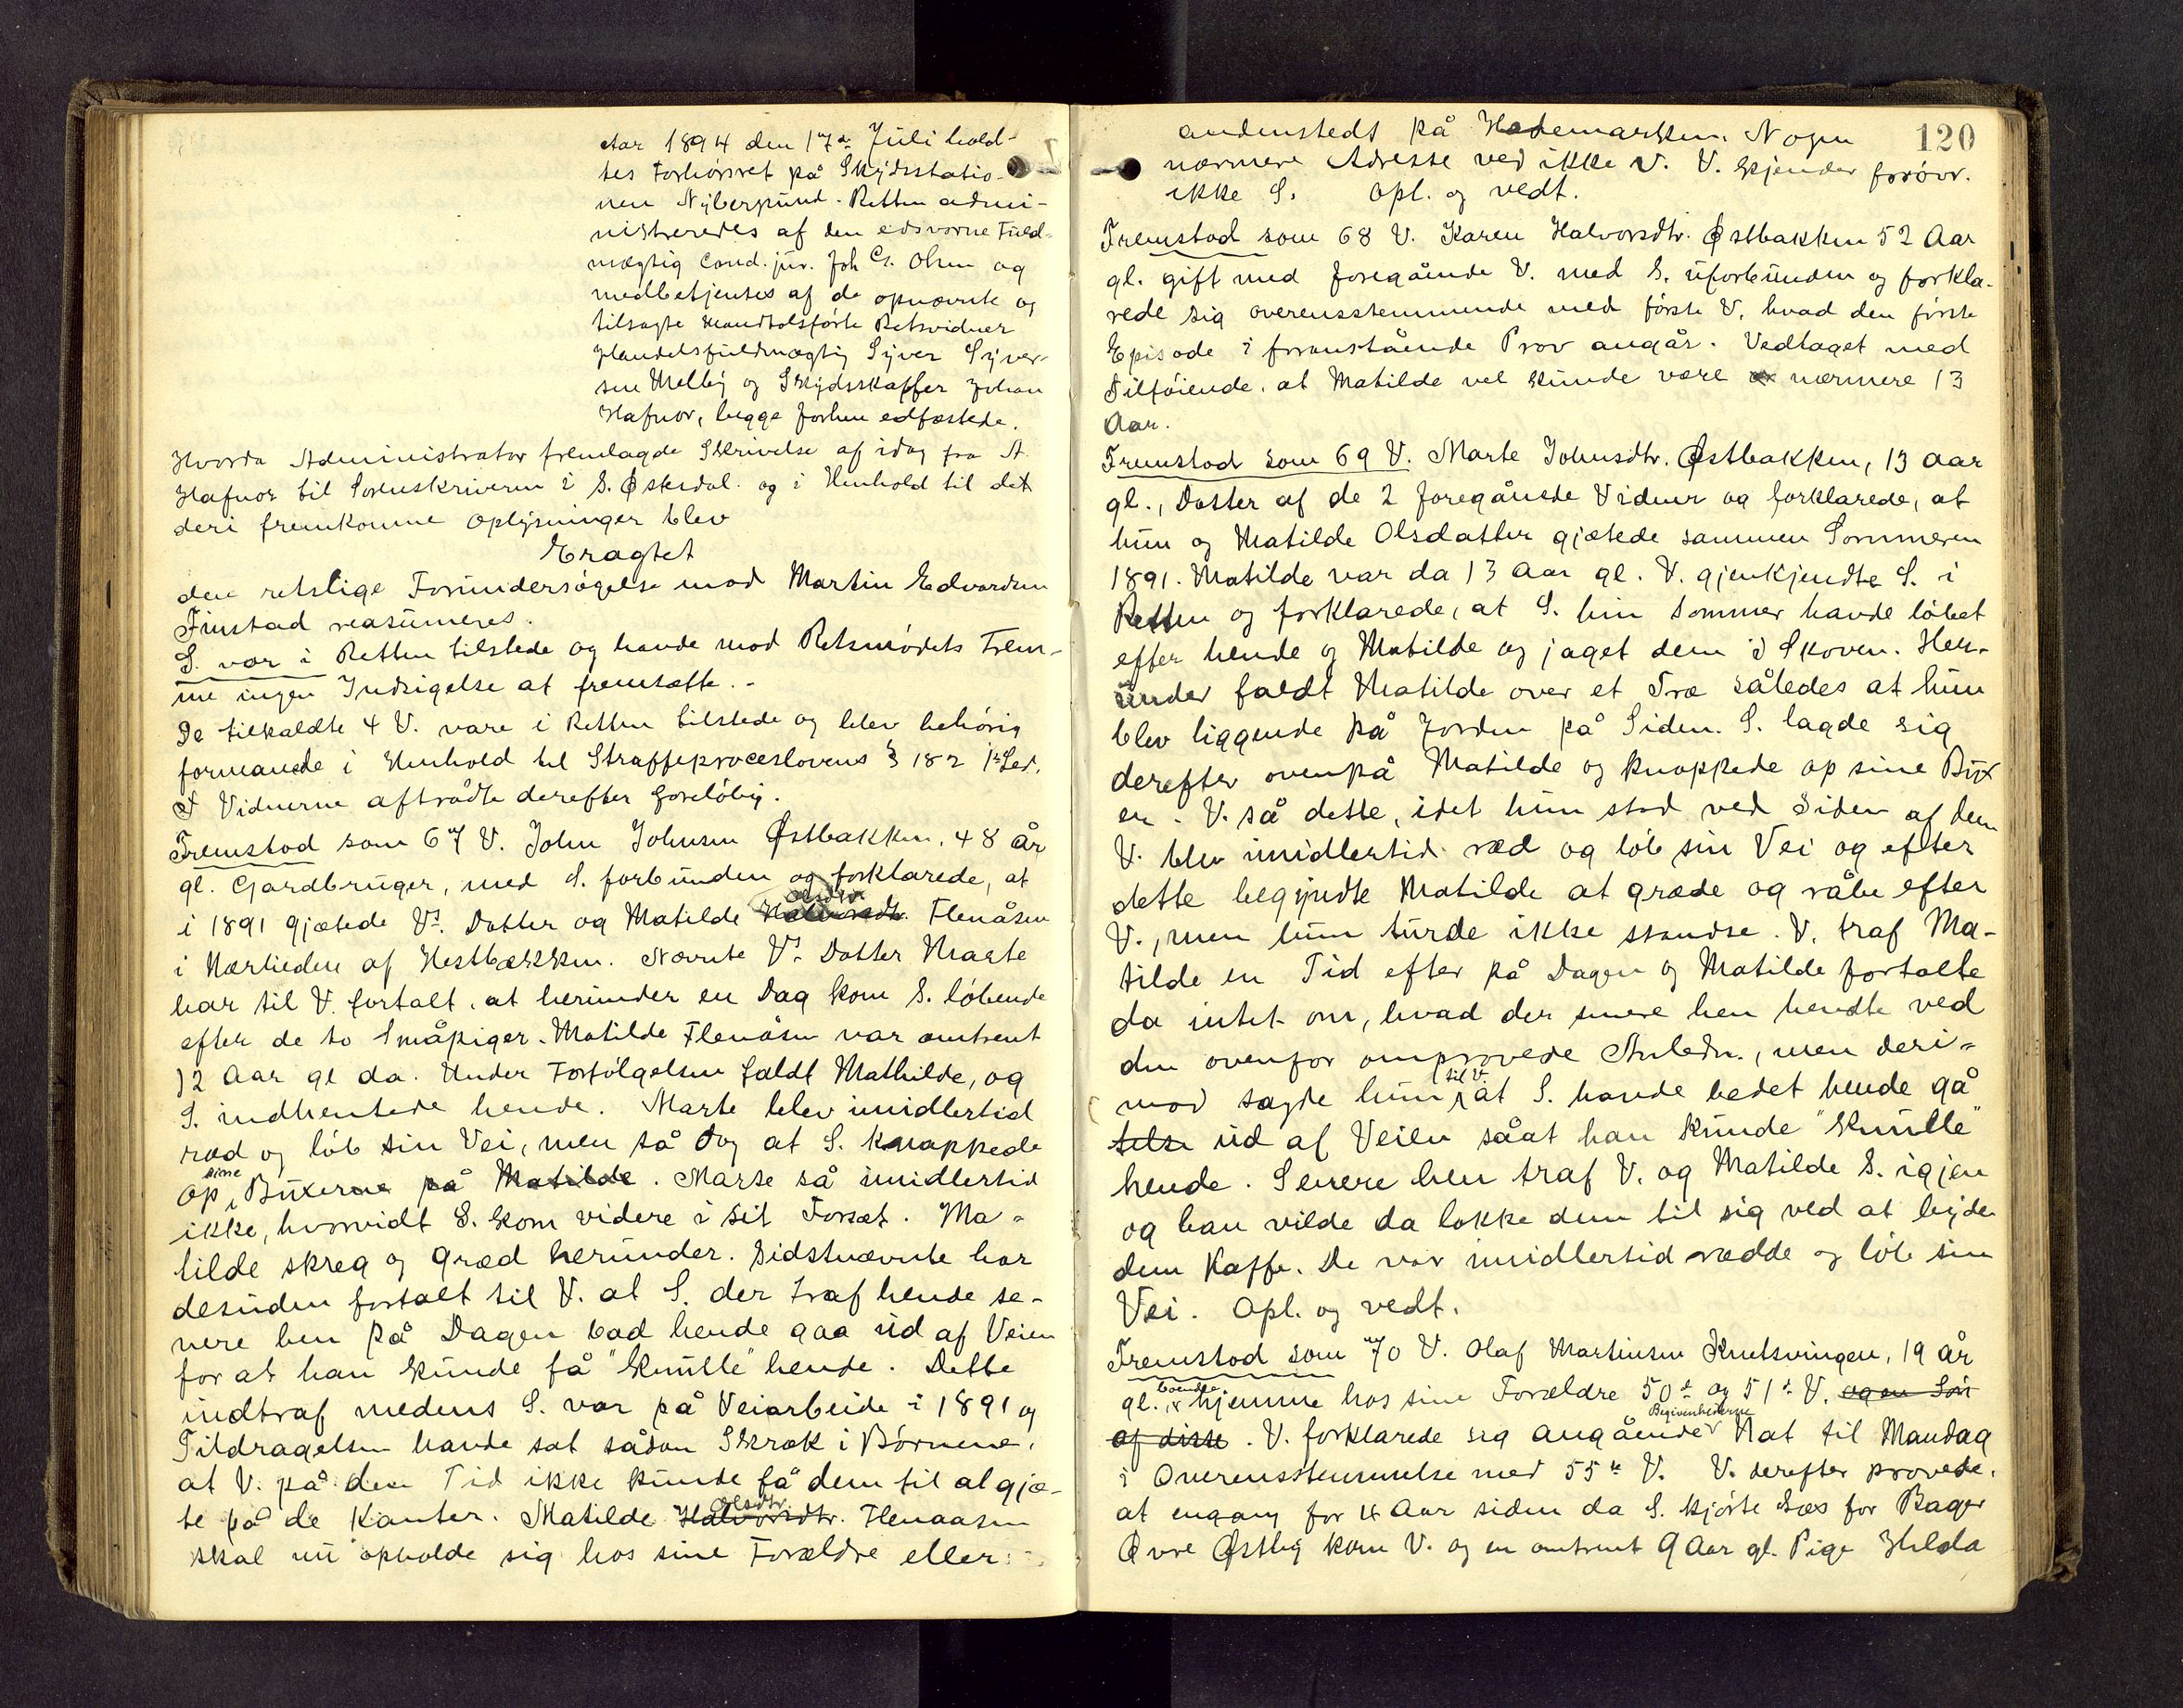 Aar 1894 den 17de Juli hold-
tes Forhörsret på Skydsstatio-
nen Nybergsund. Retten admi-
nistreredes af den edsvorne Fuld-
mægtig cand. jur. Joh G. Olsen og
medbetjentes af de opnævnte og
tilsagte mandtalsförte Retsvidner
Handelsfuldmægtig Syver Syver-
sen Melby og Skydsskaffer Johan
Hafnor, begge forhen edfæstede.
Hvorda Administrator fremlagde Skrivelse af idag fra A.
Hafnor til Sorenskriveren i S. Østerdal og i Henhold til det
deri fremkomne Oplysninger blev
Eragtet
den retslige Forundersøgelse mod Martin Edvardsen
Finstad reasumeres.
S. var i Retten tilstede og havde mod Retsmødets Frem-
me ingen Indsigelse at fremsætte.-
De tilkaldte 4 V. vare i Retten tilstede og blev behörig
formanede i Henhold til Straffeproceslovens § 182 1ste Led.
Vidnerne aftrådte derefter foreløbig.
Fremstod som 67 V. John Johnsen Østbakken, 48 år
gl. Gardbruger, med S. forbunden og forklarede, at
i 1891 gjætede Vs. Datter og Matilde Halvorsdtr. Olsdtr. Flenåsen
i Nærheden af Hestbækken. Nævnte Vs. Datter Marte
har til V. fortalt, at herunder en Dag kom S. løbende
efter de to Småpiger. Matilde Flenåsen var omtrent
12 Aar gl da. Under Forfölgelsen faldt Mathilde, og
S. indhentede hende. Marte blev imidlertid
ræd og löb sin Vei, men så dog at S. knappede
op sine Buxerne på Matilde. Marte så imidlertid
ikke, hvorvidt S. kom videre i sit Forsæt. Ma-
tilde skreg og græd herunder. Sidstnævnte har
desuden fortalt til V. at S. der traf hende se-
nere hen på Dagen bad hende gaa ud af Veien
for at han kunde få "knulle" hende. Dette
indtraf medens S. var på Veiarbeide i 1891 og
Tildragelsen havde sat sådan Skræk i Børnene,
at V. på den Tid ikke kunde få dem til at gjæ-
te på de Kanter. Matilde Halvorsdtr. Olsdtr. Flenaasen
skal nu opholde sig hos sine Forældre eller
120
andensteds på Hedemarken. Nogen
nærmere Adresse ved ikke V. V. kjender forövr.
ikke S. Opl. og vedt.
Fremstod som 68 V. Karen Halvorsdtr. Østbakken 52 Aar
gl. gift med foregående V. med S. uforbunden og forkla-
rede sig overensstemmende med förste V. hvad den förste
Episode i foranstående Prov angår. Vedtaget med
Tilföiende, at Matilde vel kunde være nærmere 13
Aar.
Fremstod som 69 V. Marte Johnsdtr. Østbakken, 13 aar
gl., Datter af de 2 foregående Vidner og forklarede, at
hun og Matilde Olsdatter gjætede sammen Sommeren
1891. Matilde var da 13 Aar gl. V. gjenkjendte S. i
Retten og forklarede, at S. hin Sommer havde löbet
efter hende og Matilde og jaget dem i Skoven. Her-
under faldt Matilde over et Træ således at hun
blev liggende på Jorden på Siden. S. lagde sig
derefter ovenpå Matilde og knappede op sine Bux
er. V. så dette, idet hun stod ved Siden af dem
V. blev imidlertid ræd og löb sin Vei og efter
dette begyndte Matilde at græde og råbe efter
V., men hun turde ikke standse. V. traf Ma-
tilde en Tid efter på Dagen og Matilde fortalte
da intet om, hvad der senere hen hendte ved
den ovenfor omprovede Anledn., men deri-
mod sagde hun til V. at S. havde bedet hende gå
ud af Veien såat han kunde "knulle"
hende. Senere hen traf V. og Matilde S. igjen
og han vilde da lokke dem til sig ved at byde
dem Kaffe. De var imidlertid rædde og löb sin
Vei. Opl. og vedt.
Fremstod som 70 V. Olaf Martinsen Knetsvingen, 19 år
gl. boende hjemme hos sine Forældre 50de og 51de V. og en Sön
af disse. V. forklarede sig angående Begivenhederne Nat til Mandag
i Overensstemmelse med 55te V. V. derefter provede,
at engang for 4 Aar siden da S. kjörte Læs for Bager
Øvre Østby kom V. og en omtrent 9 Aar gl. Pige Hilda